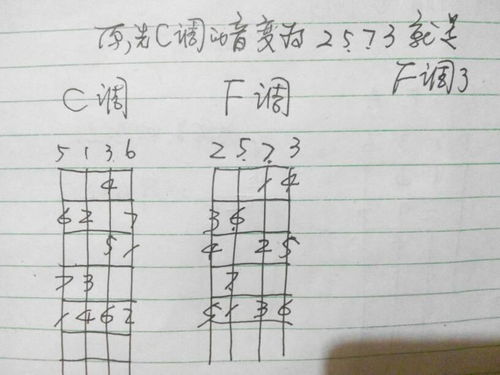 原先C调的音变为2573就是
F调了
C调 F调
5136 2573
4 14
627 36
51 425
73 7
1462 5136